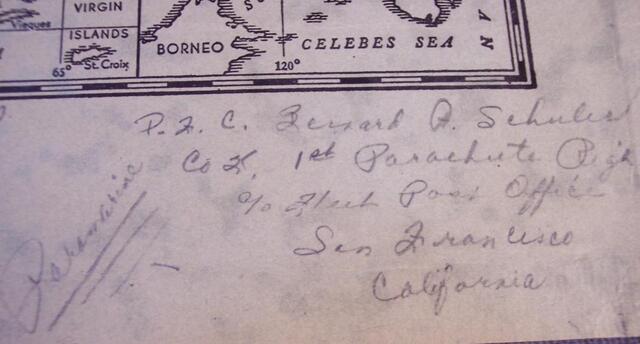 VIRGIN
Vieques
ISLANDS
St. Croix
65°
BORNEO
120°
CELEBES SEA
AN
P. F. C. Bernard A. Schuler
Co K, 1st Parachute Regt
c/o Fleet Post Office
San Francisco
California
Paramarine